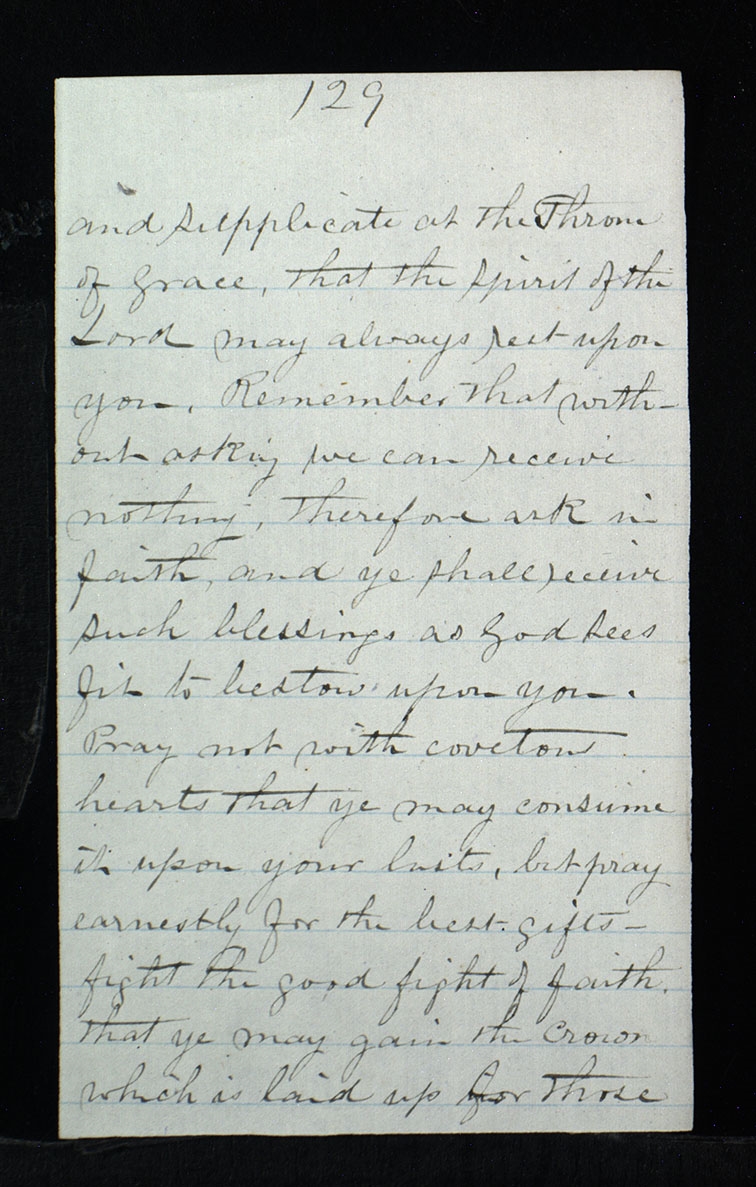 129
and supplicate at the Throne
of grace, that the spirit of the
Lord may always rest upon
you. Remember that with-
out asking we can receive
nothing, therefore ask in
faith, and ye shall receive
such blessings as God sees
fit to bestow upon you.
Pray not with covetous
hearts that ye may consume
it upon your lusts, but pray
earnestly for the best gifts-
fight the good fight of faith.
that ye may gain the Crown
which is laid up for those